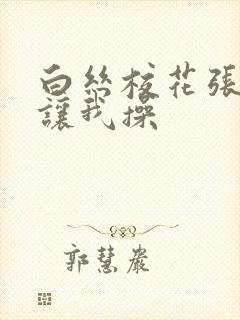 白絲校花張
讓我操
郭慧嚴